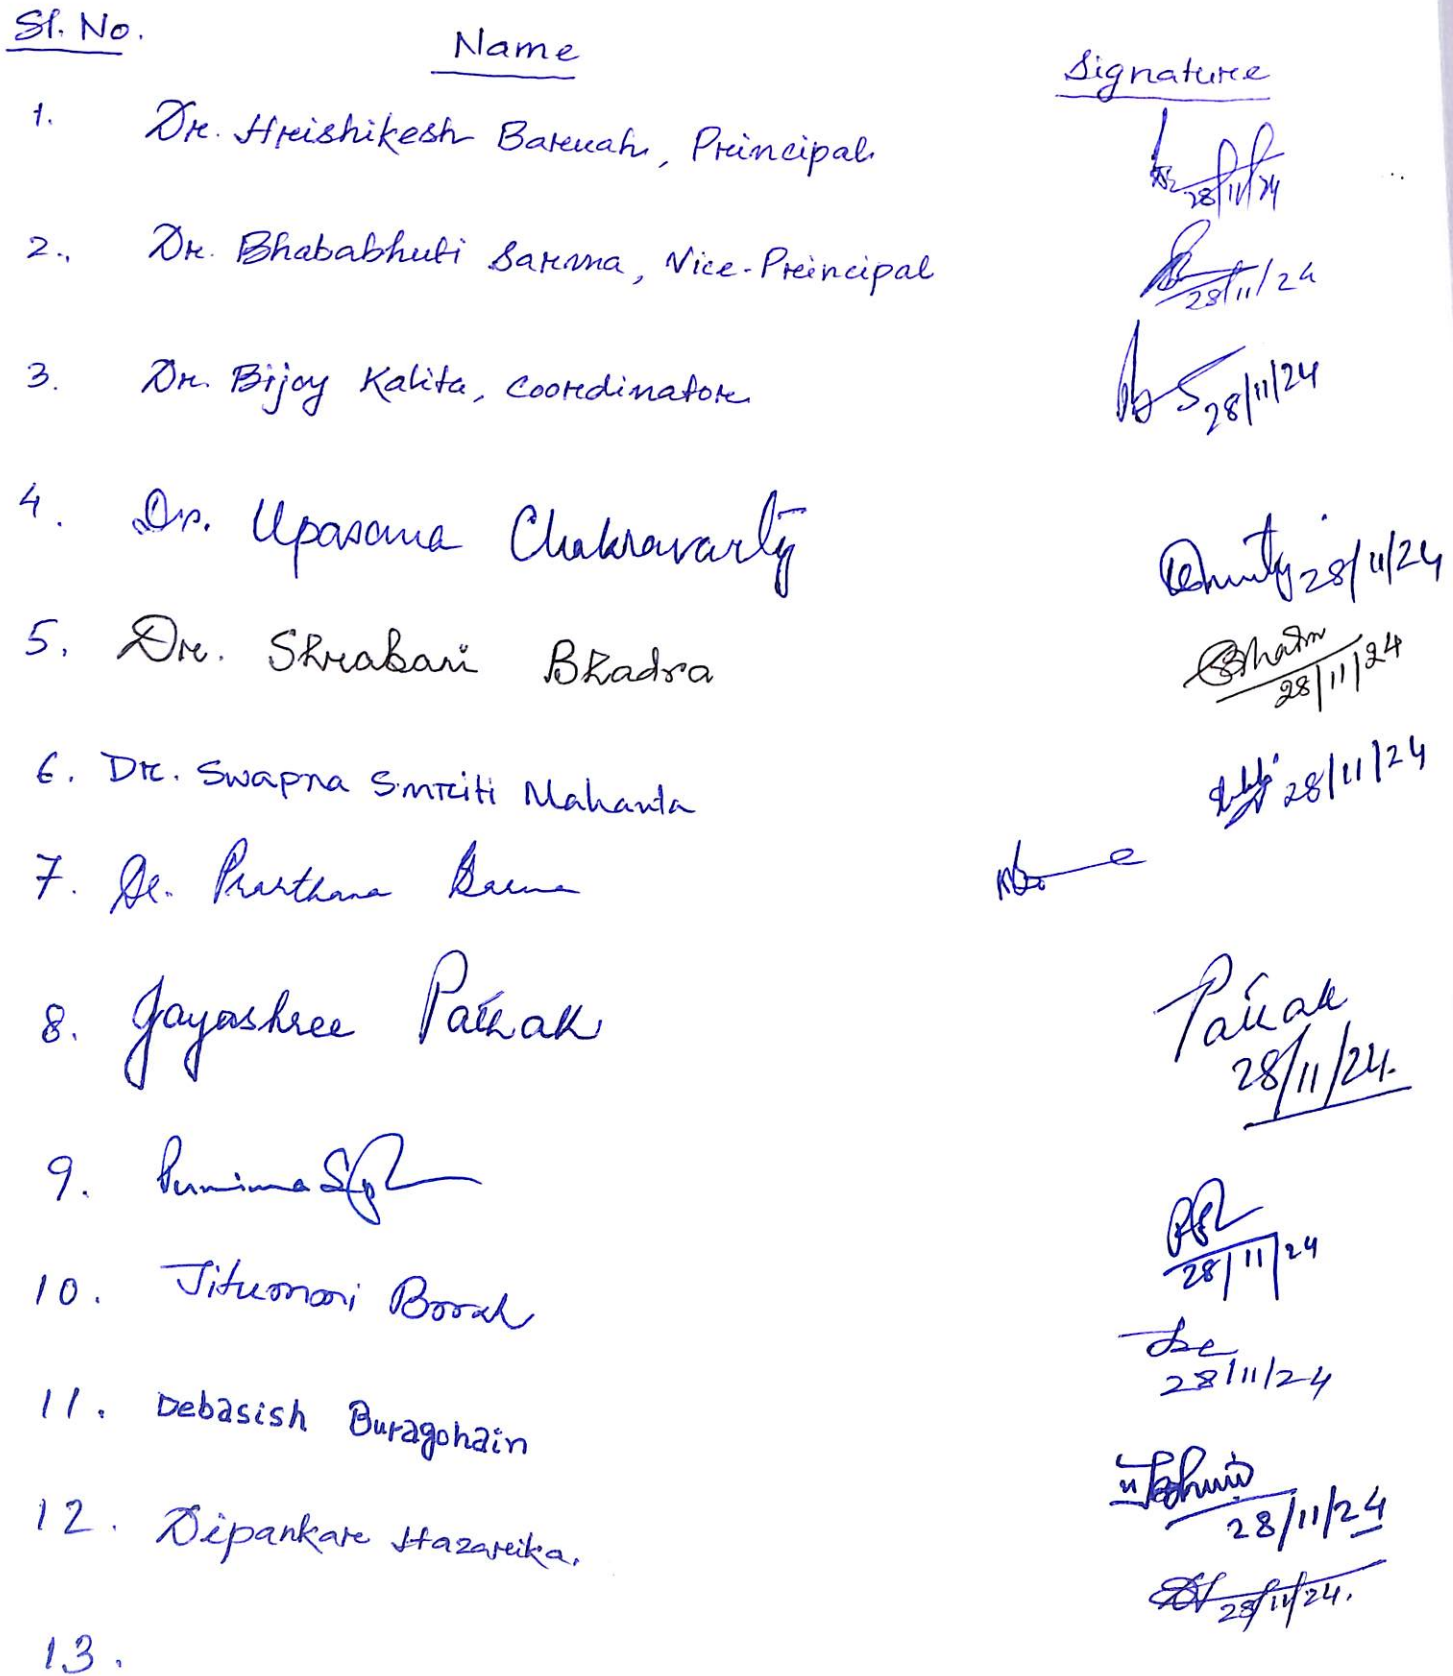 Sl. No. Name Signature
1. Dr. Hrishikesh Baruah, Principal 28/11/24
2. Dr. Bhababhuti Sarma, Vice-Principal 28/11/24
3. Dr. Bijoy Kalita, Coordinator 28/11/24
4. Dr. Upasana Chakravarty 28/11/24
5. Dr. Shrabani Bhadra 28/11/24
6. Dr. Swapna Smriti Mahanta 28/11/24
7. Dr. Prarthana
8. Jayashree Pathak Pathak
28/11/24.
9. Purnima
28/11/24
10. Jitumoni Borah
28/11/24
11. Debasish Buragohain
28/11/24
12. Dipankar Hazarika.
28/11/24.
13.